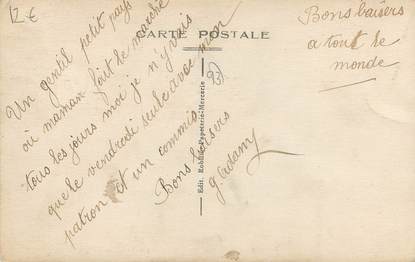 12 €
CARTE POSTALE
Un gentil petit pays
où maman fait le marché
tous les jours moi je n'y vais
que le vendredi seule avec mon
patron et un commis.
Bons baisers
g. adam
Bons baisers
a tout le
monde
93
Edit. Papeterie-Mercerie